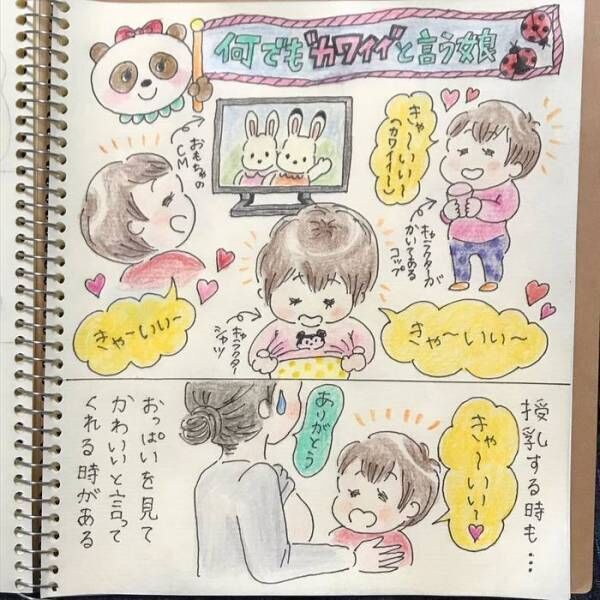 何でも"カワイイ"と言う娘
おもちゃの
CM
きゃ〜いい〜
(カワイイ〜)
キャラクターが
かいてある
コップ
きゃ〜いい〜
キャラクター
シャツ
きゃ〜いい〜
授乳する時も…
きゃ〜いい〜
ありがとう
おっぱいを見て
かわいいと言って
くれる時がある